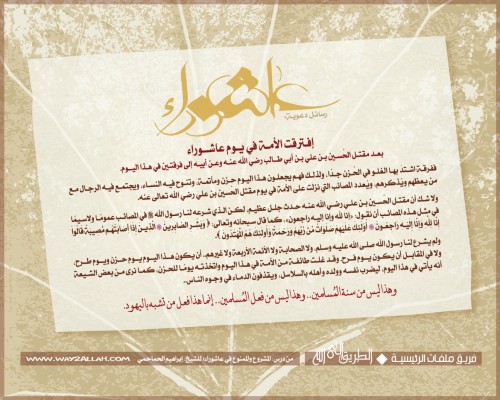 عاشوراء
رسائل دعوية
إفترقت الأمة في يوم عاشوراء
بعد مقتل الحُسين بن علي بن أبي طالب رضي الله عنه وعن أبيه إلى فرقتين في هذا اليوم.
ففرقة اشتد بها الغلو في الحزن جدًا، ولذلك فهم يجعلون هذا اليوم حزن ومأتمة، وتنوح فيه النساء، ويجتمع فيه الرجال مع
من يعظهم ويذكرهم، ويُعدد المصائب التي نزلت على الأمة في يوم مقتل الحسين بن علي رضي الله تعالى عنه.
ولا شك أن مقتل الحسين بن علي رضي الله عنه حدث جلل عظيم، لكن الذي شرعه لنا رسول الله ﷺ في المصائب عمومًا ولاسيما
في مثل هذه المصائب أن نقول: «إنا لله وإنا إليه راجعون»، كما قال سبحانه وتعالى: ﴿ وَبَشِّرِ الصَّابِرِينَ ۞ الَّذِينَ إِذَا أَصَابَتْهُم مُّصِيبَةٌ قَالُوا
إِنَّا لِلَّهِ وَإِنَّا إِلَيْهِ رَاجِعُونَ ۞ أُولَئِكَ عَلَيْهِمْ صَلَوَاتٌ مِّن رَّبِّهِمْ وَرَحْمَةٌ وَأُولَئِكَ هُمُ الْمُهْتَدُونَ ﴾.
ولم يشرع لنا رسول الله صلى الله عليه وسلم، ولا الصحابة ولا الأئمة الأربعة ولا غيرهم، أن يكون هذا اليوم يوم حزن ويوم طرح،
ولا في المقابل أن يكون يوم فرح. وقد غلت طائفة من الأمة في هذا اليوم واتخذته يومًا للحزن، كما نرى من بعض الشيعة
أنه يأتي في هذا اليوم، ليضرب نفسه وولده وأهله بالسلاسل، ويقذفون الدماء في وجوه الناس..
وهذا ليس من سنة المُسلمين.. وهذا ليس من فعل المُسلمين.. إنما هذا فعل من تشبه باليهود.
فريق ملفات الرئيسية
الطريق إلى الله
من درس: المشروع والممنوع في عاشوراء للشيخ: إبراهيم الحماحمي
WWW.WAY2ALLAH.COM